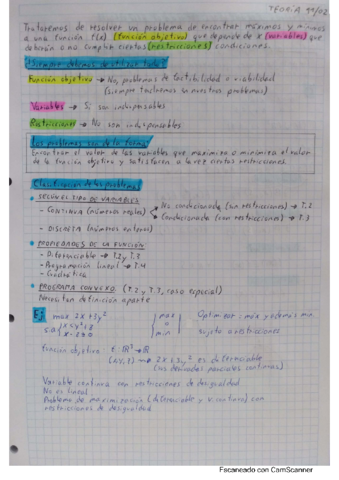 TEORÍA 14/02
Trataremos de resolver un problema de encontrar máximos y mínimos
a una función f(x) (función objetivo) que depende de x (variables) que
deberán o no cumplir ciertas (restricciones) condiciones.
¿Siempre debemos de utilizar todo?
Función objetivo → No, problemas de factibilidad o viabilidad
(siempre tendremos en nuestros problemas)
Variables → Sí son indispensables
Restricciones → No son indispensables
Los problemas son de la forma:
Encontrar el valor de las variables que maximiza o minimiza el valor
de la función objetivo y satisfacen a la vez ciertas restricciones.
Clasificación de los problemas
• SEGÚN EL TIPO DE VARIABLES
- CONTINUA (números reales)
No condicionada (sin restricciones) → T.2
Condicionada (con restricciones) → T.3
- DISCRETA (números enteros)
• PROPIEDADES DE LA FUNCIÓN
- Diferenciable → T.2 y T.3
- Programación lineal → T.4
- Cuadrática
• PROGRAMA CONVEXO (T.2 y T.3, caso especial)
Necesitan definición aparte
Ej max 2x+3y²
s.a x+y²≤3
x ≥ 0
max o min
Optimizar: máx y además mín
sujeto a restricciones
función objetivo f: ℝ² → ℝ
(x,y) → 2x+3y² es diferenciable
(sus derivadas parciales continuas)
Variable continua con restricciones de desigualdad
No es lineal
Problema de maximización (diferenciable y v. continua) con
restricciones de desigualdad
Escaneado con CamScanner